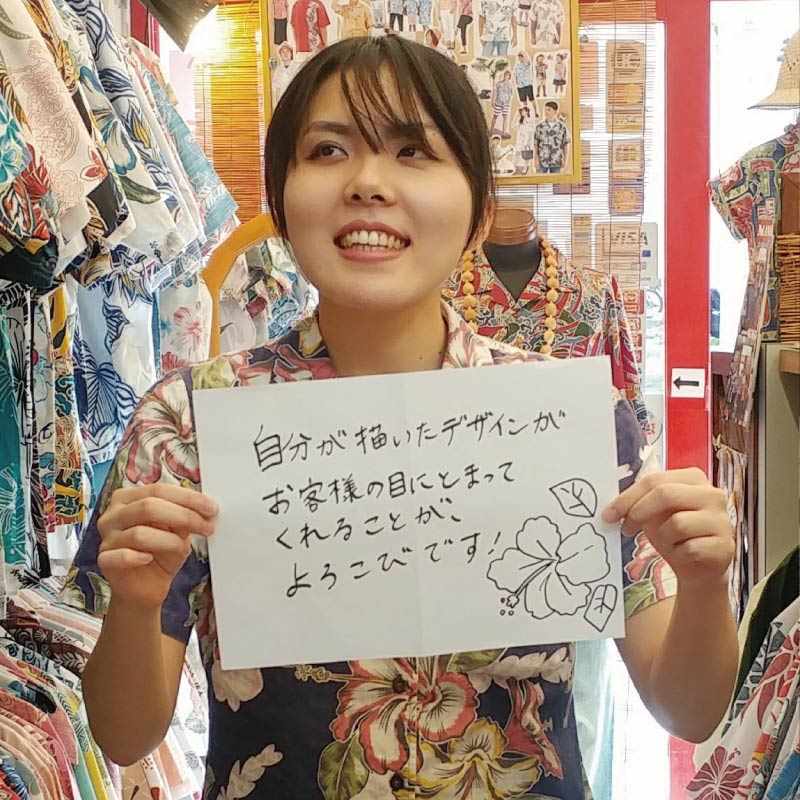 自分が描いたデザインが
お客様の目にとまって
くれることが、
よろこびです!
VISA